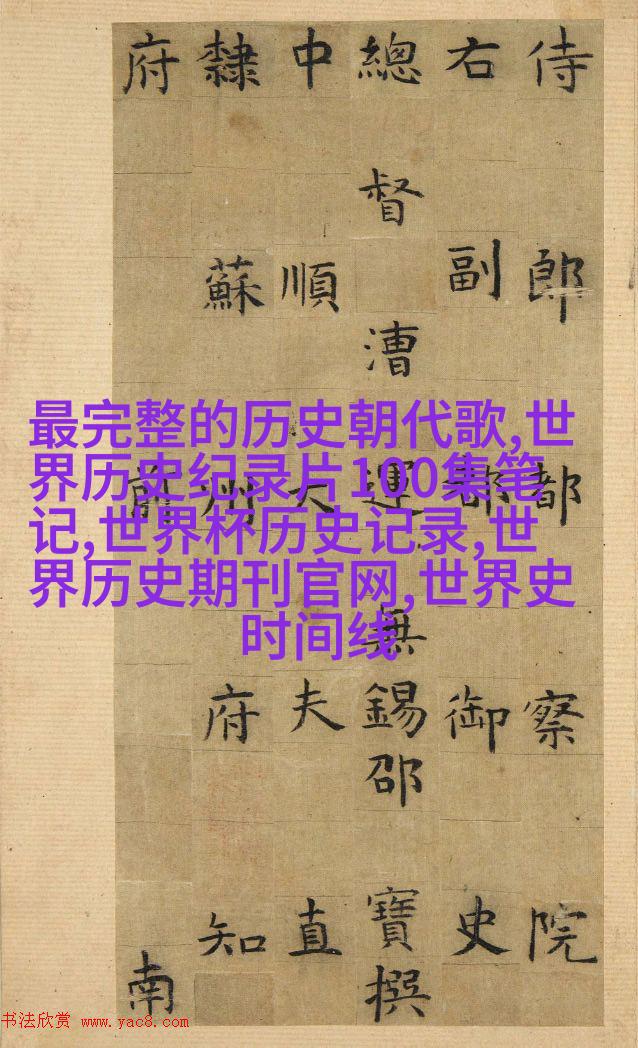 侍郎都察院
右副都御史
總督漕運無錫邵寶撰
中順大夫直
隸蘇州府知
府前南
最完整的历史朝代歌,世
界历史纪录片100集笔
记,世界杯历史记录,世
界历史期刊官网,世界史
时间线
书法欣赏 www.yac8.com